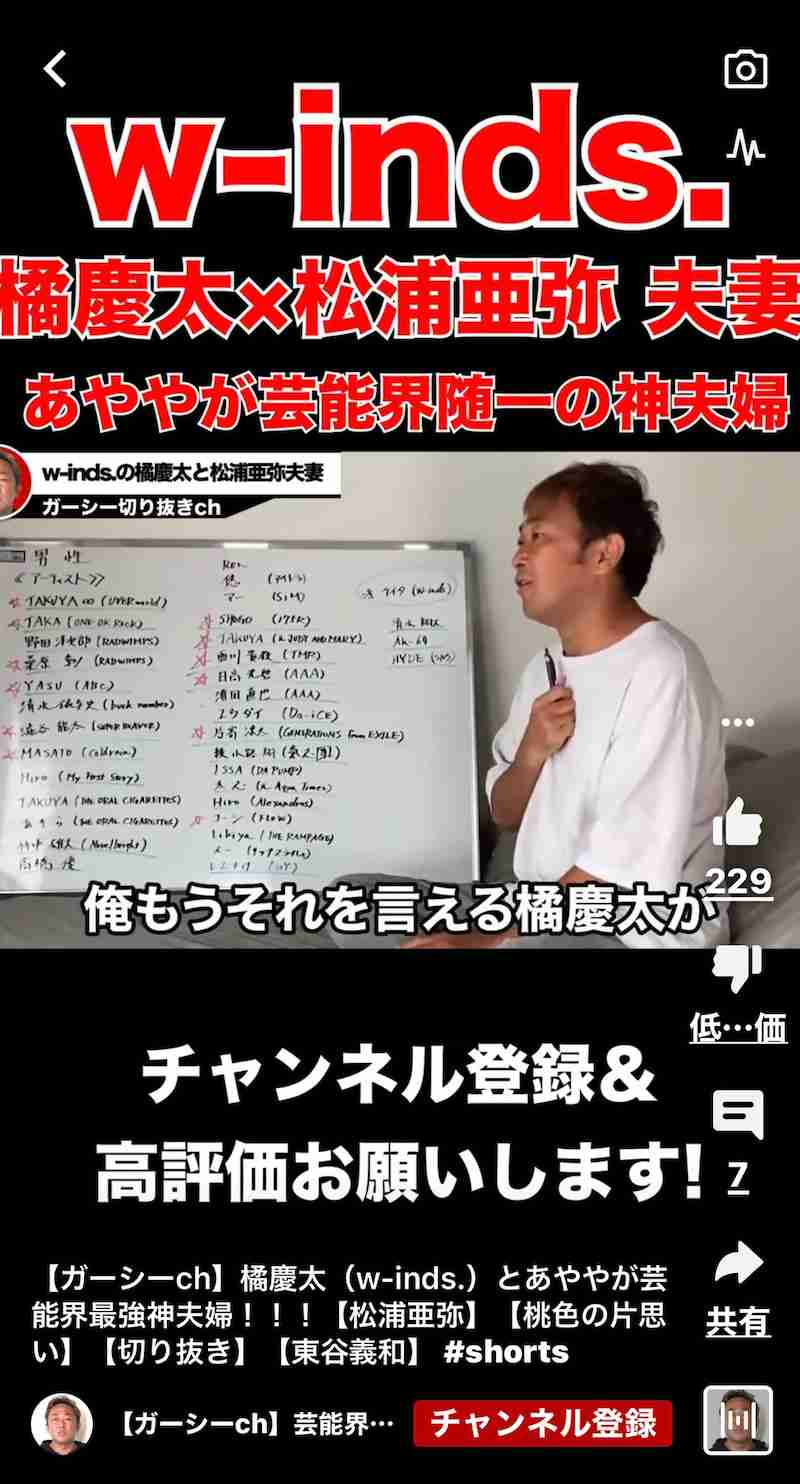 w-inds.
橘慶太×松浦亜弥 夫妻
あややが芸能界随一の神夫婦
w-inds.の橘慶太と松浦亜弥夫妻
ガーシー切り抜きch
男性
《アーティスト》
TAKUYA∞ (UVERworld)
TAKA (ONE OK ROCK)
野田洋次郎 (RADWIMPS)
桑原 彰 (RADWIMPS)
YASU (ABC)
清水依与吏 (back number)
渋谷 龍太 (SUPER BEAVER)
MASATO (coldrain)
Hiro (My First Story)
TAKUYA (THE ORAL CIGARETTES)
あきら (THE ORAL CIGARETTES)
高橋 優
Ren
悠
マー (SiM)
SHOGO (175R)
TAKUYA (JUDY AND MARY)
西川貴教 (TMR)
日高光啓 (AAA)
浦田直也 (AAA)
ユウダイ (Da-iCE)
片寄涼太 (GENERATIONS from EXILE)
ISSA (DA PUMP)
太一 (Aqua Timez)
Hiro (Alexandros)
コーン (Flow)
(THE RAMPAGE)
ケイタ (w-inds)
AK-69
HYDE
俺もうそれを言える橘慶太が
229
低…価
チャンネル登録&
高評価お願いします!
7
【ガーシーch】橘慶太（w-inds.）とあややが芸
能界最強神夫婦！！！【松浦亜弥】【桃色の片思
い】【切り抜き】【東谷義和】 #shorts
共有
【ガーシーch】芸能界…
チャンネル登録